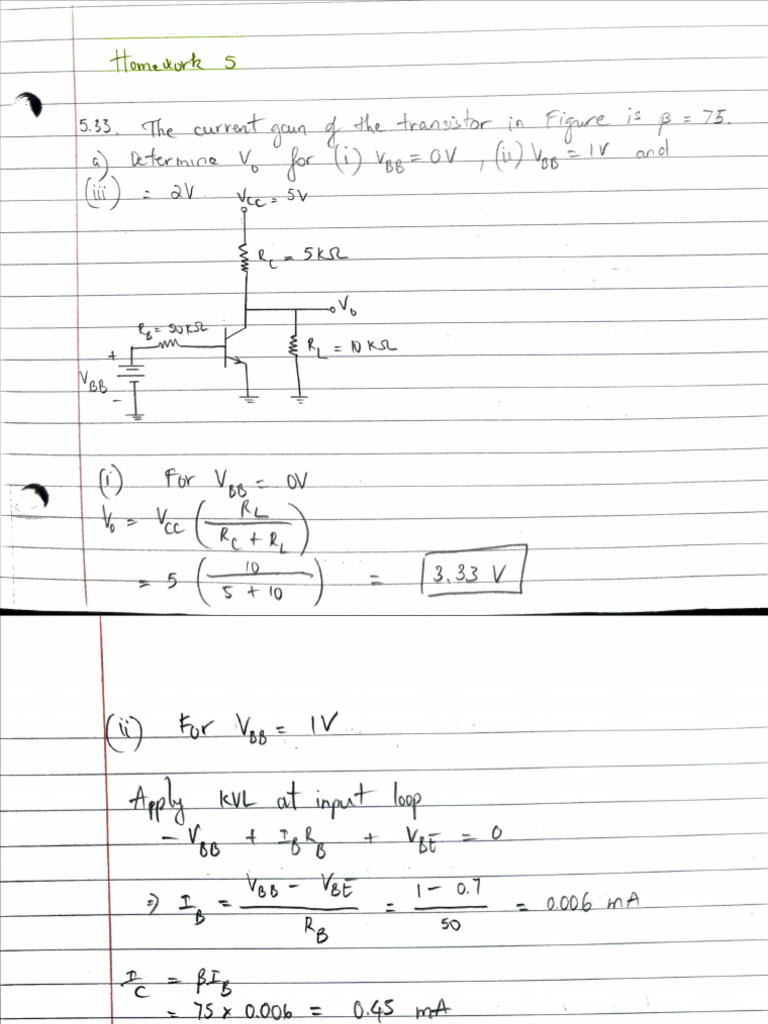 Homework 5
5.33. The current gain of the transistor in Figure is β = 75.
a) Determine V₀ for (i) V_BB = 0V, (ii) V_BB = 1V and
(iii) = 2V
V_CC = 5V
R_C = 5KΩ
V₀
R_B = 50KΩ
R_L = 10KΩ
+
V_BB
-
(i) For V_BB = 0V
V₀ = V_CC (R_L / (R_C + R_L))
= 5 (10 / (5 + 10)) = 3.33 V
(ii) For V_BB = 1V
Apply KVL at input loop
- V_BB + I_B R_B + V_BE = 0
⇒ I_B = (V_BB - V_BE) / R_B = (1 - 0.7) / 50 = 0.006 mA
I_C = βI_B
= 75 x 0.006 = 0.45 mA